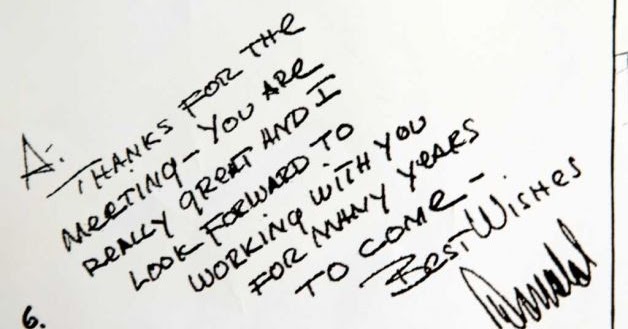 A:
THANKS FOR THE
MEETING - YOU ARE
REALLY GREAT AND I
LOOK FORWARD TO
WORKING WITH YOU
FOR MANY YEARS
TO COME -
BEST WISHES
Donald
6.